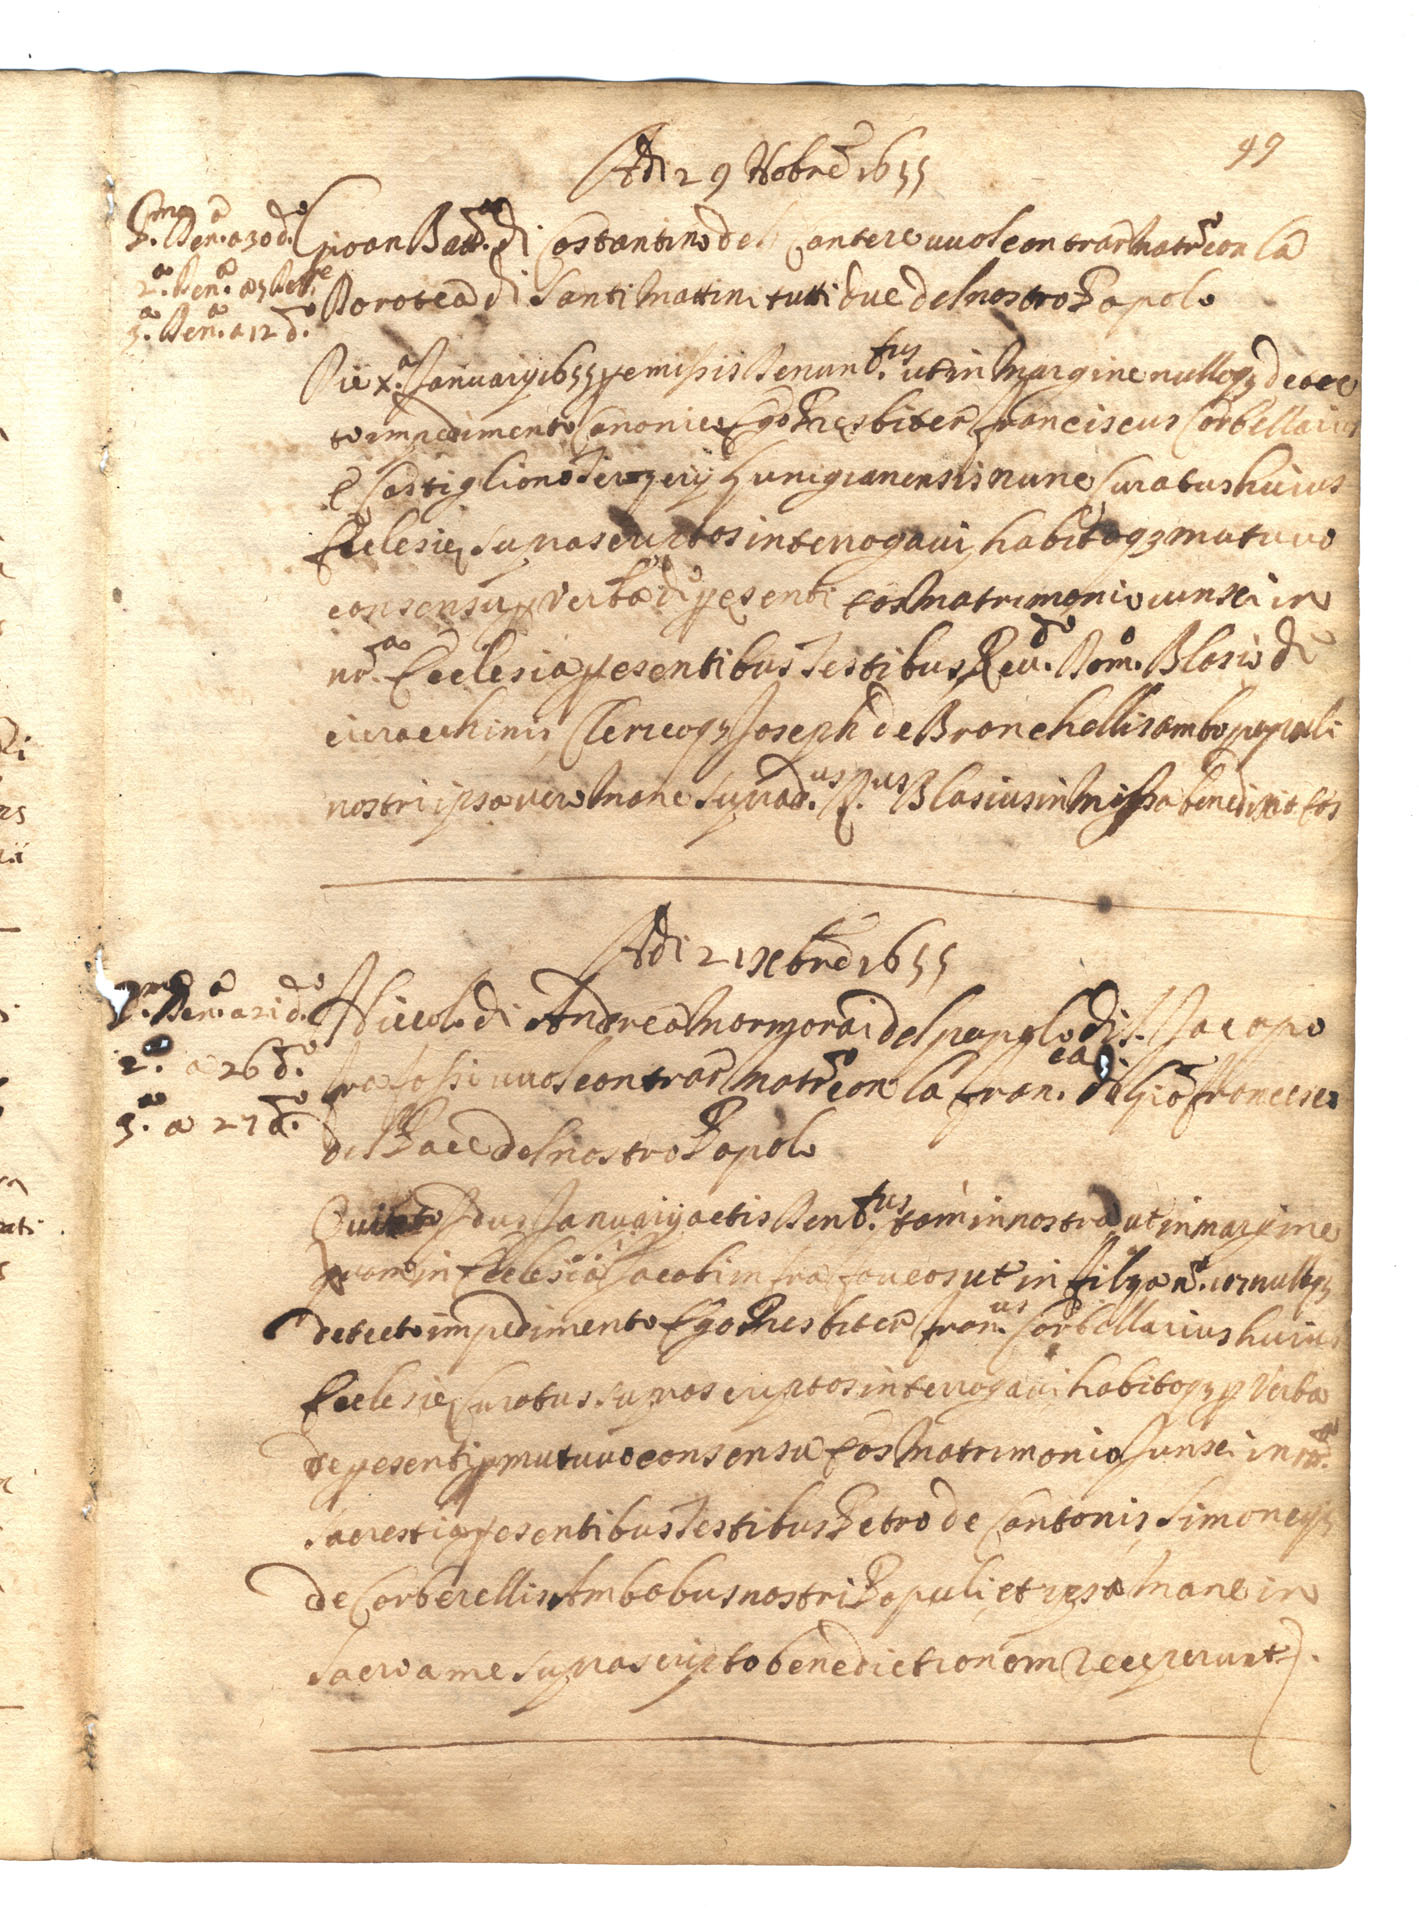 49
Adi 29 Nobre 1655
P.ma Den.a a 30 d.o
2.a Den.a a 5 Xbre
3.a Den.a a 12 d.o
Gioan Batt.a di Costantino del Cantere vuol contrar Matr.o con la
Dorotea di Santi Mattini tutti due del nostro Popolo
Die x.a Januarij 1655 premissis Denunt.bus ut in Margine nulloq3 detec
to impedimento Canonico Ego Presbiter Franciscus Corbellarius
e Castiglione Terzerij Lunigianensis nunc Curatus huius
Ecclesie suprascriptos interrogavi, habitoq3 mutuo
consensu p verba de presenti eos Matrimonio iunsci in
nr.a Ecclesia presentibus Testibus Rev.do Dom.o Blasio de
Clericoq3 Joseph de Bronchellis ambo populi
nostri ipso vero Mane suprad.us D.us Blasius in Missa benedixit eos
Adi 21 Xbre 1655
P.ma Den.a a 21 d.o
2.a a 26 d.o
3.a a 27 d.o
Niccolo di Andrea Mormorai del popolo di S. Jacopo
tra fossi vuol contrar Matr.o con la Fran.ca di Gio Francesco
del Pace del nostro Popolo
Quinto Idus Januarij actis Den.tus tam in nostra ut in margine
quam in Ecclesia S. Jacobi intra foveos ut in filza n.o 107 nulloq3
detecto impedimento Ego Presbiter Fran.us Corbellarius huius
Ecclesie Curatus suprascriptos interrogavi habitoq3 p verba
de presenti p mutuo consensu eos Matrimonio Junsci in nr.a
sacrestia presentibus Testibus Petro de Cantonis, Simoneq3
de Corberellis Ambobus nostri Populi, et ipso Mane in
Sacro a me suprascripto benedictionem receperunt.